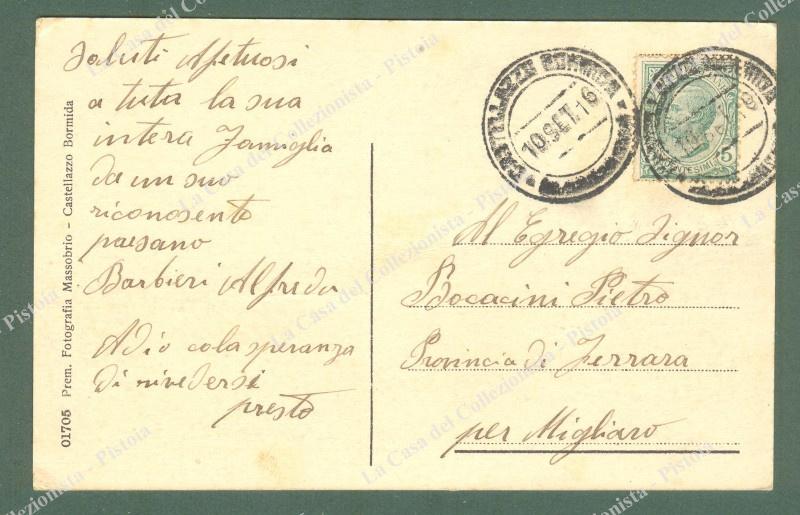 Saluti Afetuosi
a tuta la sua
intera Famiglia
da un suo
riconosento
paesano
Barbieri Alfredo
Adio cola speranza
di rivedersi
presto
01705 Prem. Fotografia Massobrio - Castellazzo Bormida
CASTELLAZZO BORMIDA
10 SET. 16
5
Al Egregio Signor
Bocacini Pietro
Provincia di Ferrara
per Migliaro
La Casa del Collezionista - Pistoia